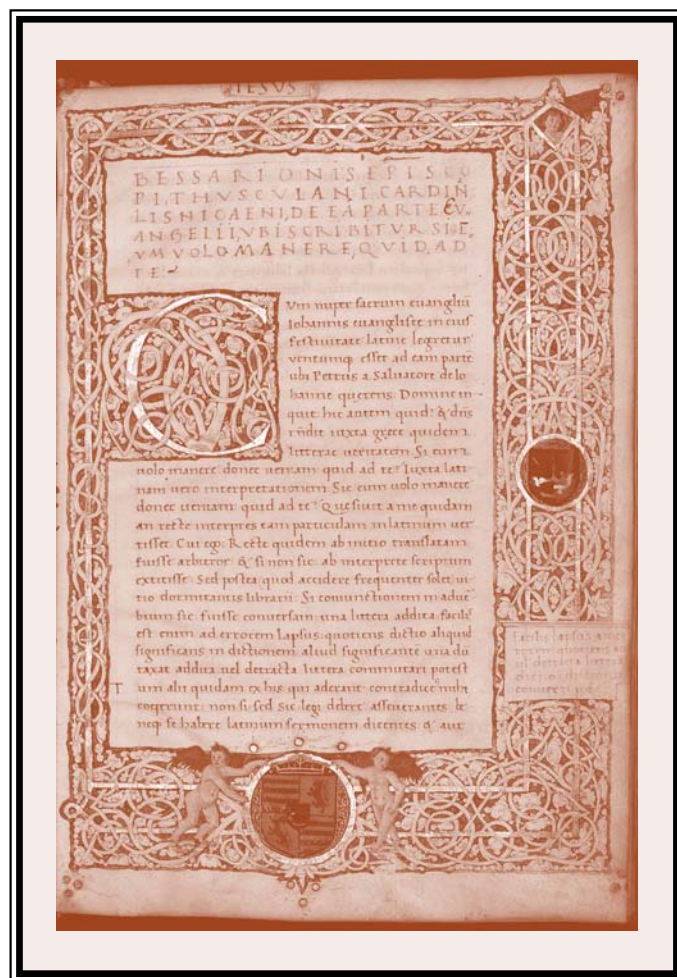 IESVS
BESSARIONIS EPISCO
PI, THVSCVLANI, CARDIN̄
LIS NICAENI, DE EA PARTE EV,
ANGELII, VBI SCRIBITVR SI Ē
VM VOLO MANERE, QVID, AD
TE
Cum nuper sacrum euangeliū
Iohannis euangeliste in eius
festiuitate latine legretur
ventumq esset ad eam partē
ubi Petrus a Saluatore de Io
hanne querens: Domine in
quit hic autem quid: & dn̄s
rn̄dit iuxta grece quidem
litterae ueritatem Si eum
uolo manere donec ueniam quid ad te? Iuxta lati
nam uero interpretationem Sic eum uolo manere
donec ueniam: quid ad te? Quesiuit a me quidam
an recte interpres eam particulam in latinum uer
tisset. Cui ego: Recte quidem ab initio translatam
fuisse arbitror & si non sic ab interprete scriptum
extitisse. Sed postea quod accidere frequenter solet ui
tio dormitantis librarii: Si coniunctionem in aduer
bium sic fuisse conuersam: una littera addita. facilis
est enim ad errorem lapsus: quotiens dictio aliquid
significans in dictionem aliud significantē una dū
taxat addita uel detracta littera commutari potest
T um alii quidam ex his qui aderant contradice mihi
coeperunt: non si sed sic legi debere asseuerantes
neq se habere latinum sermonem dicentes & aut
facilis lapsus
quotiens
uel detracta littera
dictio